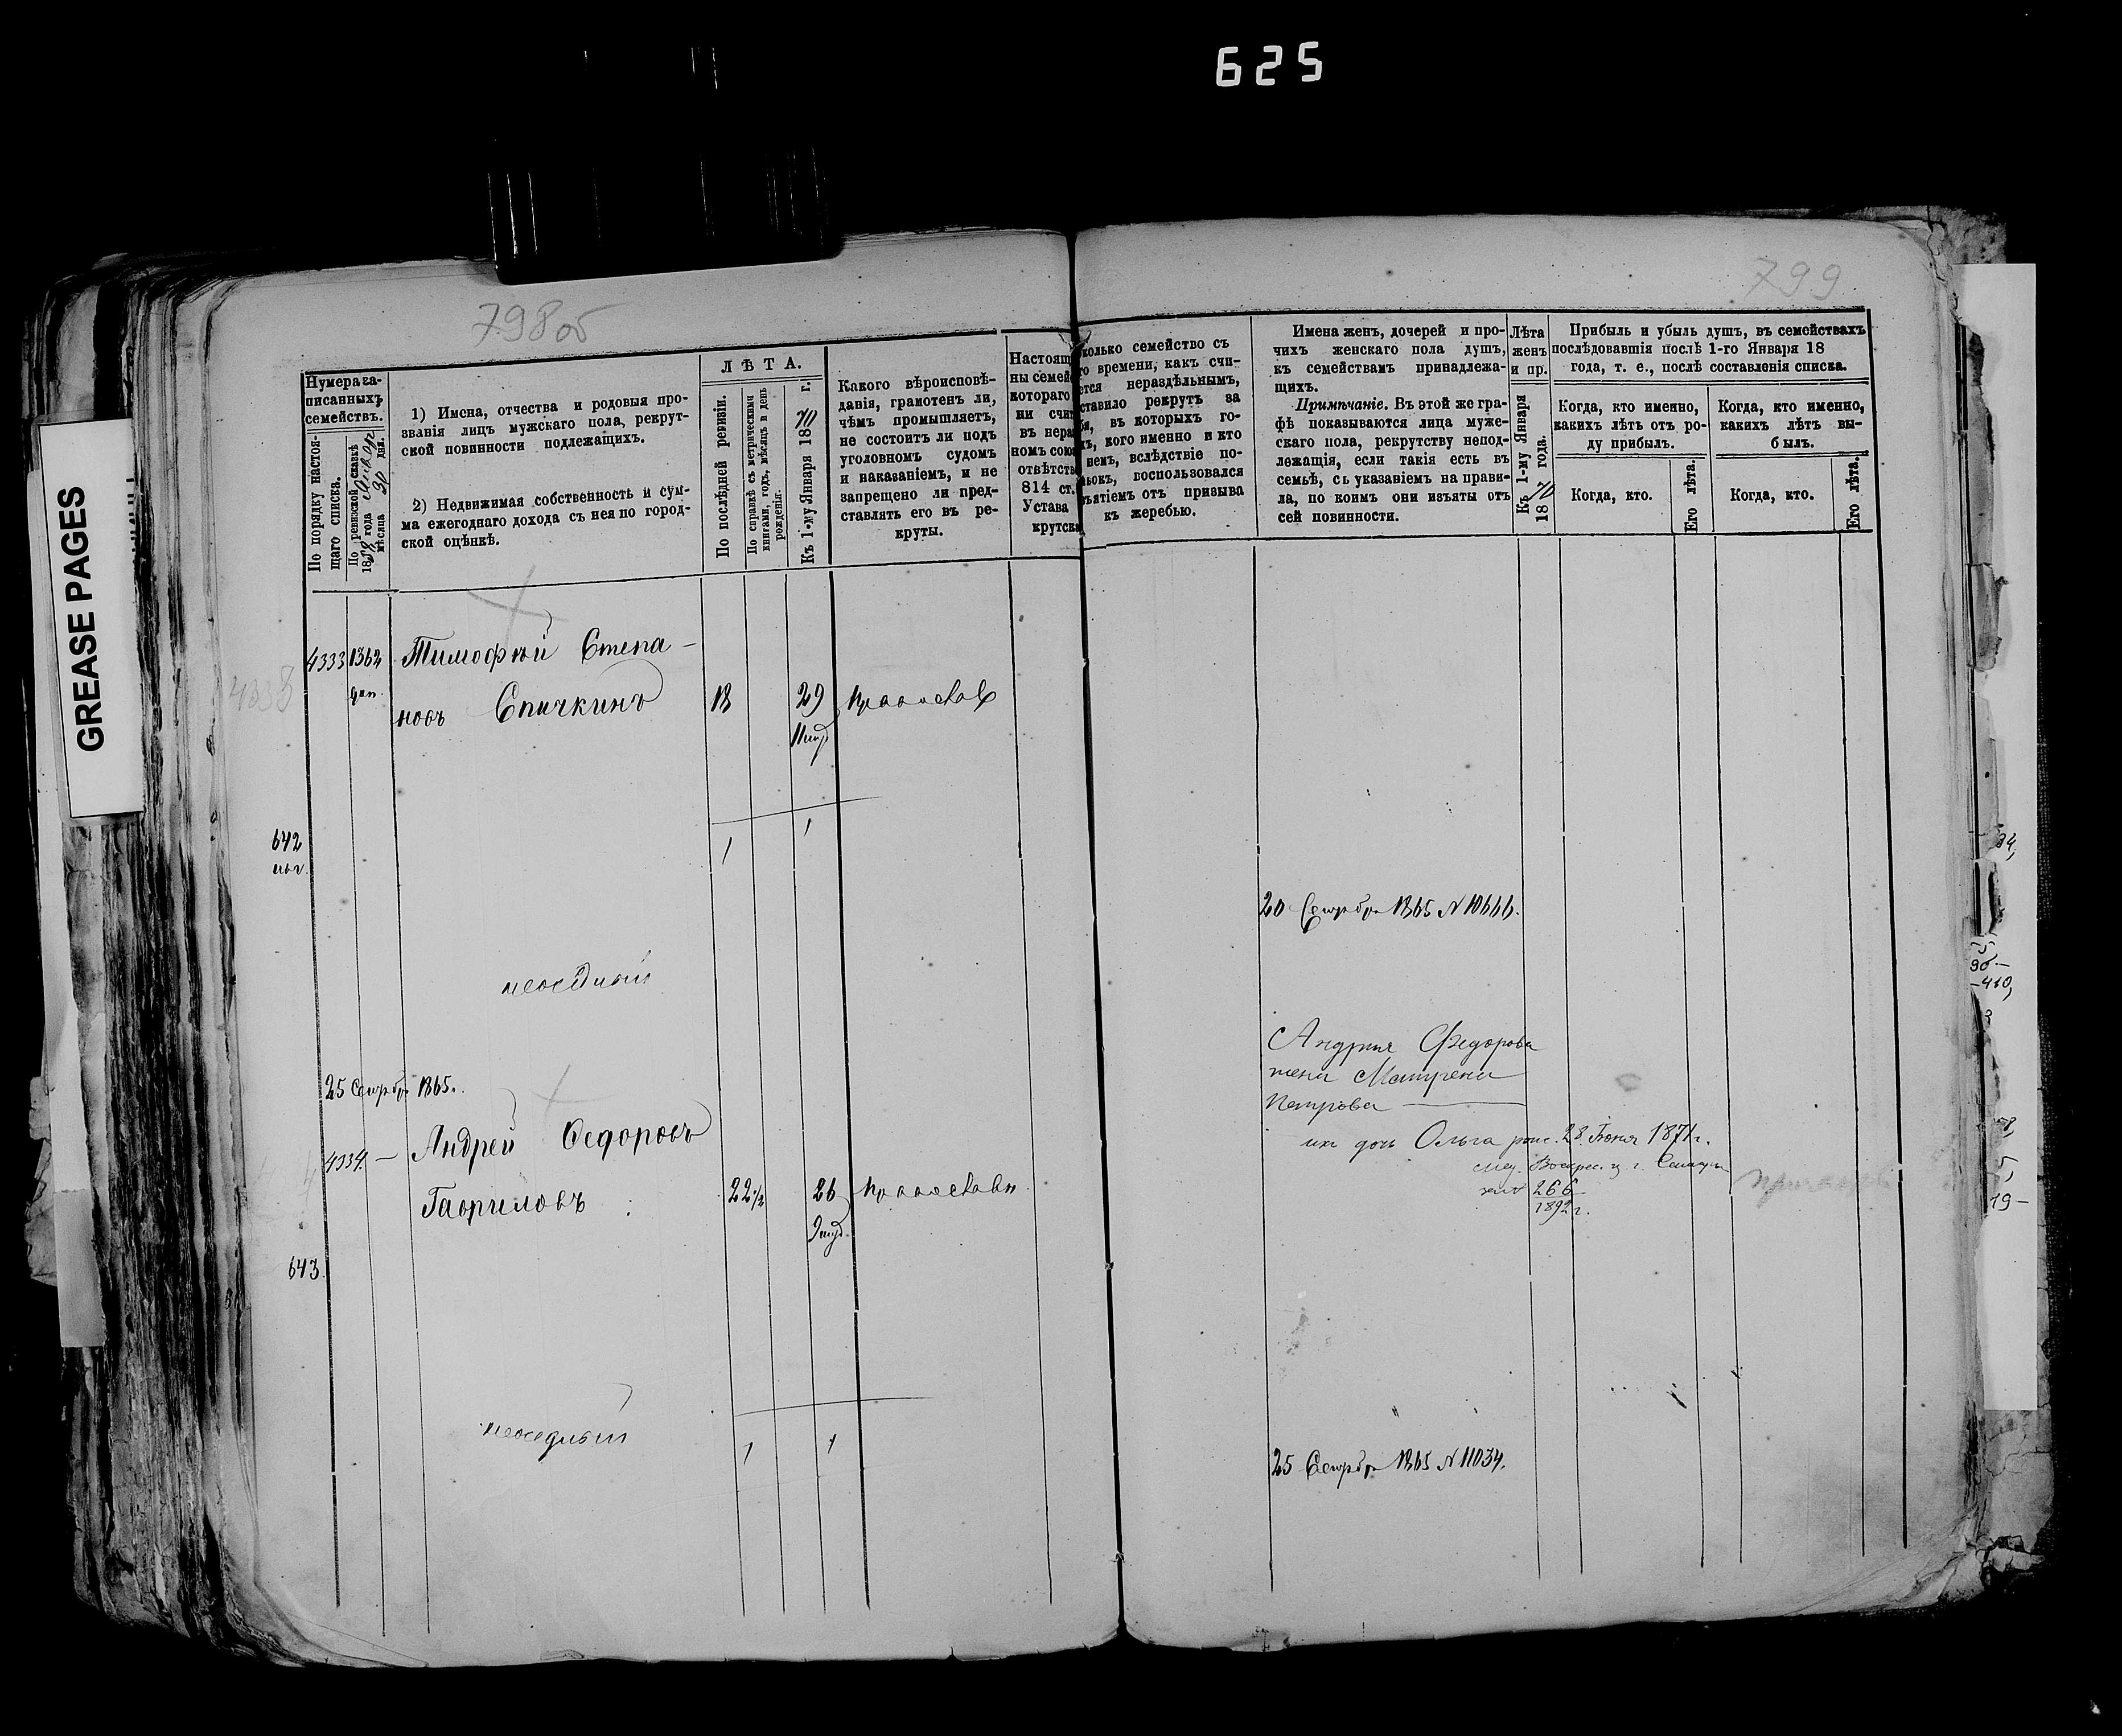 625
GREASE PAGES
798об
799
Нумера за-
писанныхъ
семействъ.
По порядку настоя-
щаго списка.
По ревизской сказкѣ
1858 года
мѣсяца 30 дня.
1) Имена, отчества и родовыя про-
званія лицъ мужскаго пола, рекрут-
ской повинности подлежащихъ.
2) Недвижимая собственность и сум-
ма ежегоднаго дохода съ нея по город-
ской оцѣнкѣ.
ЛѢТА.
По послѣдней ревизіи.
По справкѣ съ метрическими
книгами, годъ, мѣсяцъ и день
рожденія.
Къ 1-му Января 1870 г.
Какого вѣроисповѣ-
данія, грамотенъ ли,
чѣмъ промышляетъ,
не состоитъ ли подъ
уголовномъ судомъ
и наказаніемъ, и не
запрещено ли пред-
ставлять его въ ре-
круты.
Настоящ
ны семей
котораго
ни счит
въ нера
номъ союз
отвѣтств
814 ст.
Устава
крутска
колько семейство съ
го времени, какъ счи-
ется нераздѣльнымъ,
ставило рекрутъ за
бя, въ которыхъ го-
хъ, кого именно и кто
немъ, вслѣдствіе по-
ьокъ, воспользовался
ъятіемъ отъ призыва
къ жеребью.
Имена женъ, дочерей и про-
чихъ женскаго пола душъ,
къ семействамъ принадлежа-
щихъ.
Примѣчаніе. Въ этой же гра-
фѣ показываются лица муже-
скаго пола, рекрутству непод-
лежащія, если такія есть въ
семьѣ, съ указаніемъ на прави-
ла, по коимъ они изъяты отъ
сей повинности.
Лѣта
женъ
и пр.
Къ 1-му Января
1870 года.
Прибыль и убыль душъ, въ семействахъ
послѣдовавшія послѣ 1-го Января 18
года, т. е., послѣ составленія списка.
Когда, кто именно,
какихъ лѣтъ отъ ро-
ду прибылъ.
Когда, кто именно,
какихъ лѣтъ вы-
былъ.
Когда, кто.
Его лѣта.
Когда, кто.
Его лѣта.
4333 1362 Тимофѣй Степа-
новъ Спичкинъ 18 29 православ
1 1
642
20 Сентябр 1865 N 10666.
неосѣдлый
25 Сентябр 1865.
4334. — Андрей Ѳедоровъ
Гавриловъ 22 1/2 26 православн
643
Андрея Федорова
жена Матрена
Петрова
их дочь Ольга рож. 28 Июня 1871 г.
266
1892 г.
неоседлый
1 1
25 Сентябр 1865 N 11034.